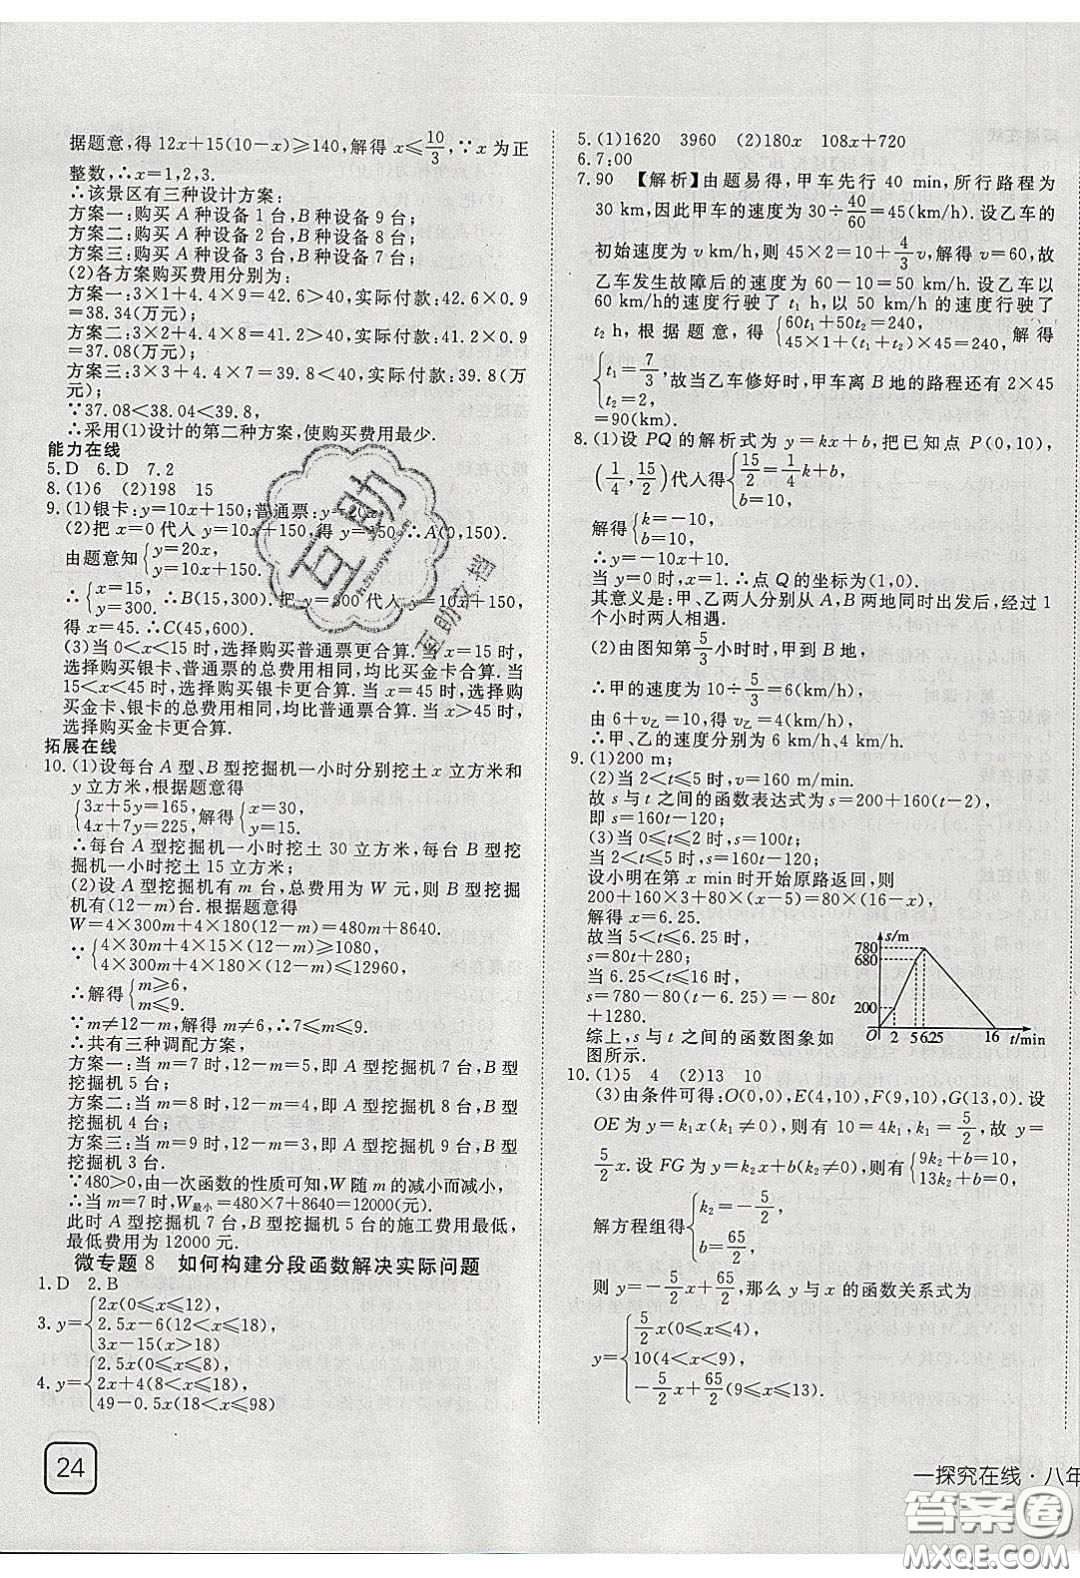 据题意,得 12x+15(10-x)≥140,解得 x≤10/3,∵x 为正
整数,∴x=1,2,3.
∴该景区有三种设计方案:
方案一:购买 A 种设备 1 台,B 种设备 9 台;
方案二:购买 A 种设备 2 台,B 种设备 8 台;
方案三:购买 A 种设备 3 台,B 种设备 7 台;
(2)各方案购买费用分别为:
方案一:3×1+4.4×9=42.6>40,实际付款:42.6×0.9
=38.34(万元);
方案二:3×2+4.4×8=41.2>40,实际付款:41.2×0.9
=37.08(万元);
方案三:3×3+4.4×7=39.8<40,实际付款:39.8(万
元);
∵37.08<38.04<39.8,
∴采用(1)设计的第二种方案,使购买费用最少.
能力在线
5.D 6.D 7.2
8.(1)6 (2)198 15
9.(1)银卡:y=10x+150;普通票:y=20x;
(2)把 x=0 代入 y=10x+150,得 y=150∴A(0,150).
由题意知{y=20x,
y=10x+150.
∴{x=15,
y=300. ∴B(15,300).把 y=300 代入 y=10x+150,
得 x=45.∴C(45,600);
(3)当 0<x<15 时,选择购买普通票更合算.当 x=15 时,
选择购买银卡、普通票的总费用相同,均比买金卡合算.当
15<x<45 时,选择购买银卡更合算.当 x=45 时,选择购
买金卡、银卡的总费用相同,均比普通票合算.当 x>45 时,
选择购买金卡更合算.
拓展在线
10.(1)设每台 A 型、B 型挖掘机一小时分别挖土 x 立方米和
y 立方米,根据题意得
{3x+5y=165,
4x+7y=225, 解得{x=30,
y=15.
∴每台 A 型挖掘机一小时挖土 30 立方米,每台 B 型挖
掘机一小时挖土 15 立方米;
(2)设 A 型挖掘机有 m 台,总费用为 W 元,则 B 型挖掘机
有(12-m)台.根据题意得
W=4×300m+4×180(12-m)=480m+8640.
∵{4×30m+4×15×(12-m)≥1080,
4×300m+4×180×(12-m)≤12960,
∴解得{m≥6,
m≤9.
∵m≠12-m,解得 m≠6,∴7≤m≤9.
∴共有三种调配方案,
方案一:当 m=7 时,12-m=5,即 A 型挖掘机 7 台,B 型
挖掘机 5 台;
方案二:当 m=8 时,12-m=4,即 A 型挖掘机 8 台,B 型
挖掘机 4 台;
方案三:当 m=9 时,12-m=3,即 A 型挖掘机 9 台,B 型
挖掘机 3 台.
∵480>0,由一次函数的性质可知,W 随 m 的减小而减小,
∴当 m=7 时,W最小=480×7+8640=12000(元).
此时 A 型挖掘机 7 台,B 型挖掘机 5 台的施工费用最低,
最低费用为 12000 元.
微专题 8 如何构建分段函数解决实际问题
1.D 2.B
3.y={2x(0≤x≤12),
2.5x-6(12<x≤18),
3x-15(x>18)
4.y={2.5x(0≤x≤8),
2x+4(8<x≤18),
49-0.5x(18<x≤98)
24
5.(1)1620 3960 (2)180x 108x+720
6.7:00
7.90 【解析】由题易得,甲车先行 40 min,所行路程为
30 km,因此甲车的速度为 30÷40/60=45(km/h).设乙车的
初始速度为 v km/h,则 45×2=10+4/3v,解得 v=60,故
乙车发生故障后的速度为 60-10=50(km/h).设乙车以
60 km/h 的速度行驶了 t₁ h,以 50 km/h 的速度行驶了
t₂ h,根据题意,得{60t₁+50t₂=240,
45×1+(t₁+t₂)×45=240, 解得
{t₁=7/3,
t₂=2. 故当乙车修好时,甲车离 B 地的路程还有 2×45
=90(km).
8.(1)设 PQ 的解析式为 y=kx+b,把已知点 P(0,10),
(1/4,15/2)代入得{15/2=1/4k+b,
b=10,
解得{k=-10,
b=10,
∴y=-10x+10.
当 y=0 时,x=1.∴点 Q 的坐标为(1,0).
其意义是:甲、乙两人分别从 A,B 两地同时出发后,经过 1
个小时两人相遇.
(2)由图知第5/3小时,甲到 B 地,
∴甲的速度为 10÷5/3=6(km/h),
由 6+v乙=10,得 v乙=4(km/h).
∴甲、乙的速度分别为 6 km/h、4 km/h.
9.(1)200 m;
(2)当 2<t≤5 时,v=160 m/min.
故 s 与 t 之间的函数表达式为 s=200+160(t-2),
即 s=160t-120;
(3)当 0≤t≤2 时,s=100t;
当 2<t≤5 时,s=160t-120;
设小明在第 x min 时开始原路返回,则
200+160×3+80×(x-5)=80×(16-x),
解得 x=6.25.
故当 5<t≤6.25 时,
s=80t+280;
当 6.25<t≤16 时,
s=780-80(t-6.25)=-80t
+1280.
综上,s 与 t 之间的函数图象如
图所示.
s/m
780
680
200
O 2 5 6.25 16 t/min
10.(1)5 4 (2)13 10
(3)由条件可得:O(0,0),E(4,10),F(9,10),G(13,0).设
OE 为 y=k₁x(k₁≠0),则有 10=4k₁,k₁=5/2,故 y=
5/2x.设 FG 为 y=k₂x+b(k₂≠0),则有{9k₂+b=10,
13k₂+b=0,
解方程组得{k₂=-5/2,
b=65/2,
则 y=-5/2x+65/2,那么 y 与 x 的函数关系式为
y={5/2x(0≤x≤4),
10(4<x<9),
-5/2x+65/2(9≤x≤13).
一探究在线·八年
互助
答案圈
MXQE.COM